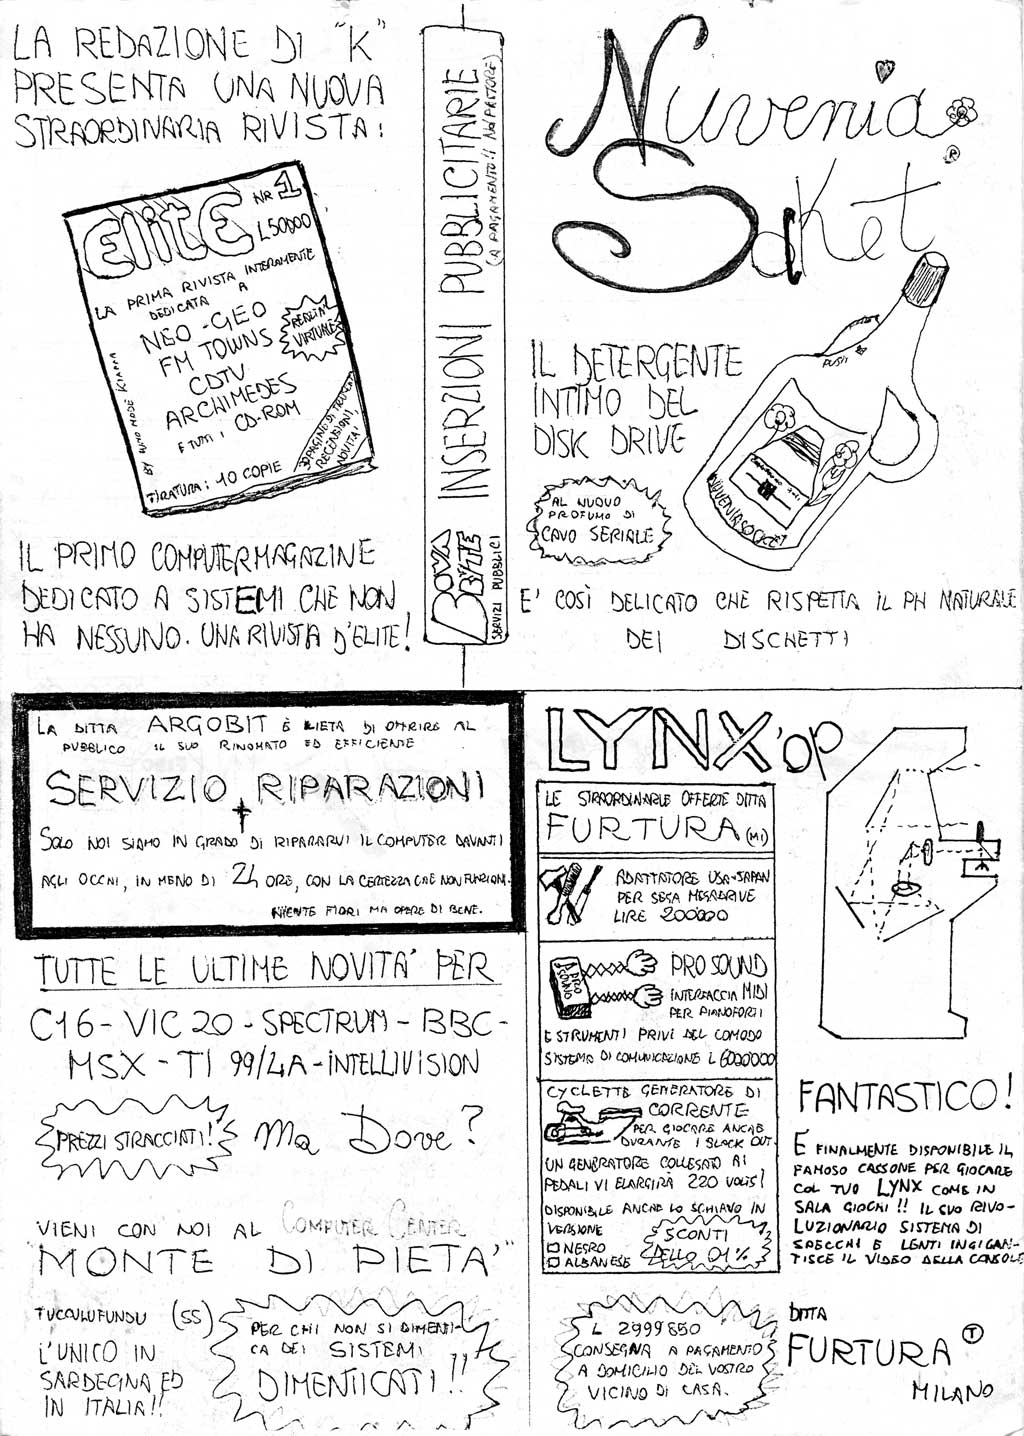 LA REDAZIONE DI "K"
PRESENTA UNA NUOVA
STRAORDINARIA RIVISTA:
ELITE NR 1
L50000
LA PRIMA RIVISTA INTERAMENTE
DEDICATA A
NEO-GEO
FM TOWNS
CDTV
ARCHIMEDES
E TUTTI I CD-ROM
REALTÀ
VIRTUALE
30 PAGINE DI TRUCCHI
RECENSIONI,
NOVITÀ
TIRATURA: 10 COPIE
IL PRIMO COMPUTERMAGAZINE
DEDICATO A SISTEMI CHE NON
HA NESSUNO. UNA RIVISTA D'ELITE!
INSERZIONI PUBBLICITARIE
(A PAGAMENTO!!
BOVABYTE
SERVIZI PUBBLICI
Nuvenia
Socket
®
IL DETERGENTE
INTIMO DEL
DISK DRIVE
PUSH
NUVENIA SOCKET
AL NUOVO
PROFUMO DI
CAVO SERIALE
E' COSÌ DELICATO CHE RISPETTA IL PH NATURALE
DEI DISCHETTI
LA DITTA ARGOBIT È LIETA DI OFFRIRE AL
PUBBLICO IL SUO RINOMATO ED EFFICIENTE
SERVIZIO RIPARAZIONI
SOLO NOI SIAMO IN GRADO DI RIPARARVI IL COMPUTER DAVANTI
AGLI OCCHI, IN MENO DI 24 ORE, CON LA CERTEZZA CHE NON FUNZIONI.
NIENTE FIORI MA OPERE DI BENE.
TUTTE LE ULTIME NOVITA' PER
C16-VIC 20-SPECTRUM-BBC-
MSX-TI 99/4A-INTELLIVISION
PREZZI STRACCIATI!
Ma Dove?
VIENI CON NOI AL COMPUTER CENTER
"MONTE DI PIETA'"
TUCULUFUNDU (SS)
L'UNICO IN
SARDEGNA ED
IN ITALIA!!
PER CHI NON SI DIMENTI-
CA DEI SISTEMI
DIMENTICATI!!
LYNX'OP
LE STRAORDINARIE OFFERTE DITTA
FURTURA (MI)
ADATTATORE USA-JAPAN
PER SEGA MEGADRIVE
LIRE 200000
PRO SOUND
INTERFACCIA MIDI
PER PIANOFORTI
E STRUMENTI PRIVI DEL COMODO
SISTEMA DI COMUNICAZIONE L 6000000
CYCLETTE GENERATORE DI
CORRENTE
PER GIOCARE ANCHE
DURANTE I BLACK OUT.
UN GENERATORE COLLEGATO AI
PEDALI VI ELARGIRÀ 220 VOLTS!
DISPONIBILE ANCHE LO SCHIAVO IN
VERSIONE
□ NEGRO
□ ALBANESE
SCONTI
DELLO 01%
FANTASTICO!
E FINALMENTE DISPONIBILE IL
FAMOSO CASSONE PER GIOCARE
COL TUO LYNX COME IN
SALA GIOCHI!! IL SUO RIVO-
LUZIONARIO SISTEMA DI
SPECCHI E LENTI INGIGAN-
TISCE IL VIDEO DELLA CONSOLE
L 2999850
CONSEGNA A PAGAMENTO
A DOMICILIO DEL VOSTRO
VICINO DI CASA.
DITTA
FURTURA Ⓣ
MILANO